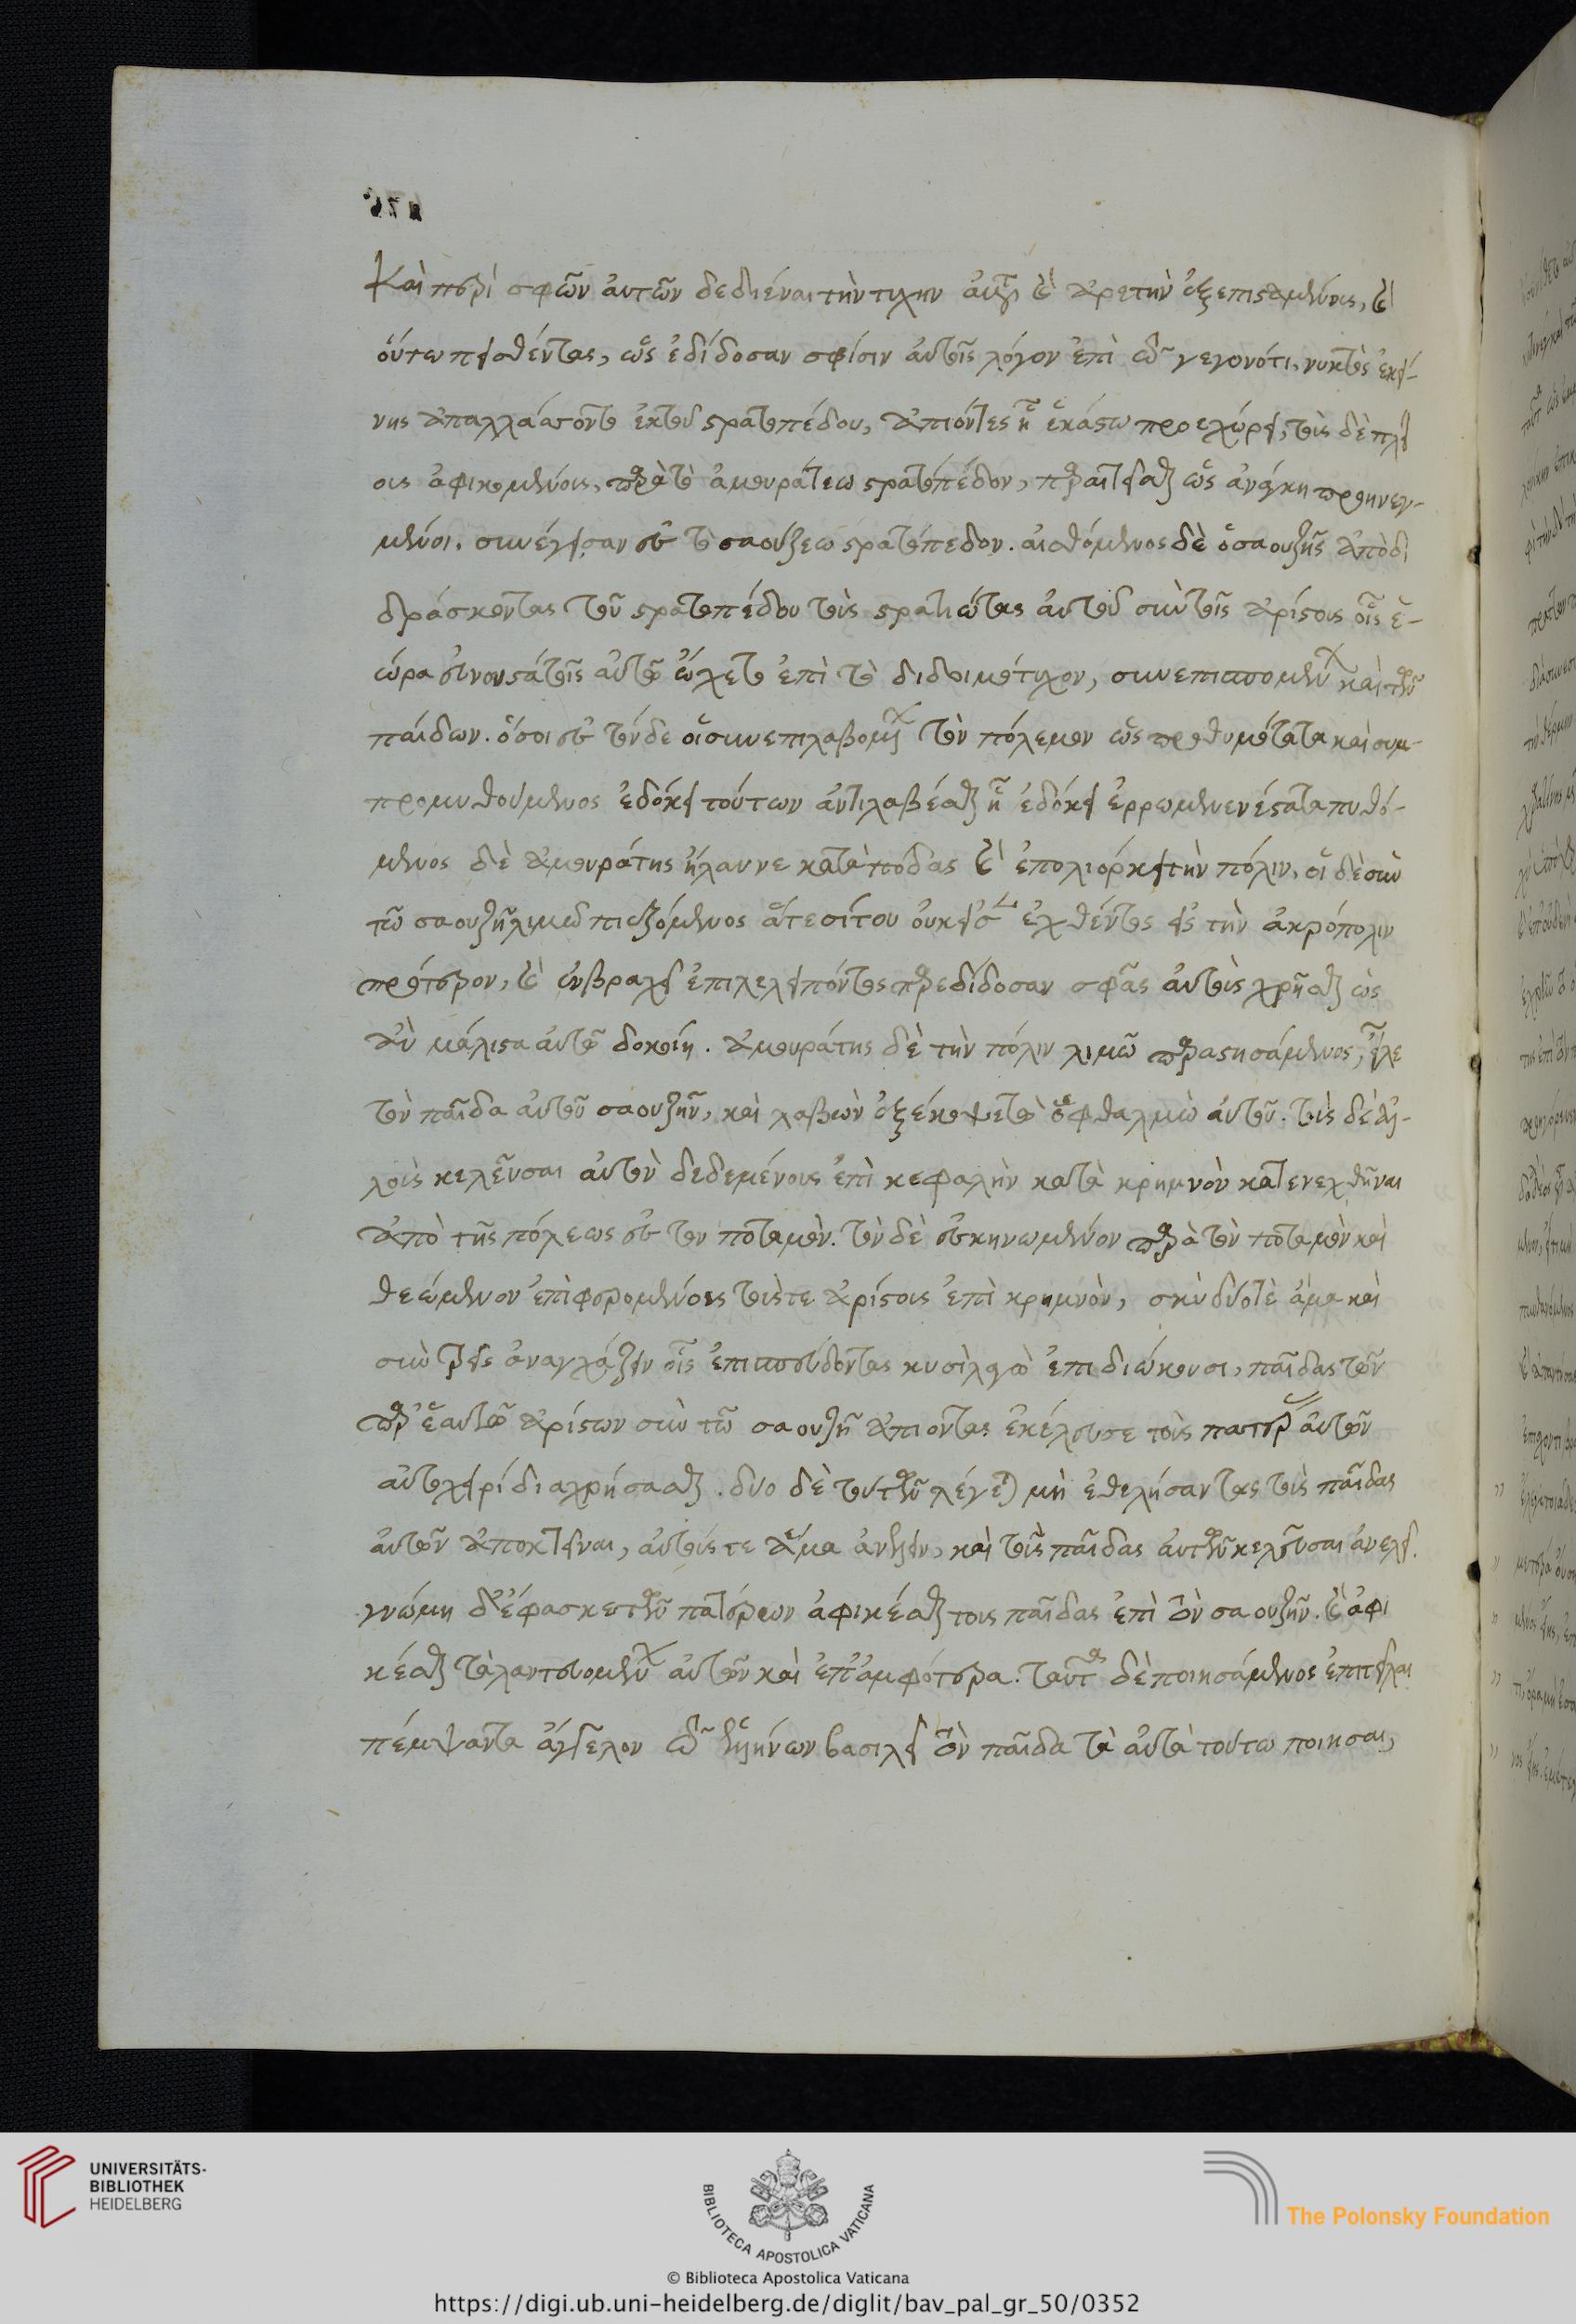 καὶ περὶ σφῶν αὐτῶν δεδιέναι τὴν τύχην ἀμφὶ καὶ ἀρετὴν ἐξεπισταμένοις, καὶ
οὕτω πεισθέντας, ὡς ἐδίδοσαν σφίσιν αὐτοῖς λόγον ἐπὶ τῷ γεγονότι, νυκτὸς ἐκεί-
νης ἀπαλλάσσοντο ἐκ τοῦ στρατοπέδου, ἀπιόντες ᾗ ἑκάστῳ προεχώρει, τοῖς δὲ
οις ἀφικομένοις, παρὰ τὸ ἀμουράτεω στρατόπεδον, ὡς ἀνάγκῃ
μένοι. ἐς τὸ σαούζεω στρατόπεδον. αἰσθόμενος δὲ ὁ σαουζῆς ἀποδι
δράσκοντας τοῦ στρατοπέδου τοὺς στρατιώτας αὐτοῦ σὺν τοῖς ἀρίστοις οἷς ἑ-
ώρα εὐνουστάτοις αὐτῷ ᾤχετο ἐπὶ τὸ διδυμότυχον, συνεπισπομένων καὶ τῶν
παίδων. ὅσοι ἐς τόνδε οἱ συνεπιλαβομένοι τὸν πόλεμον ὡς προθυμότατα καὶ συμ-
προμυθούμενος ἐδόκει τούτων ἀντιλαβέσθαι ᾗ ἐδόκει ἐρρωμενενέστατα πυθό-
μενος δὲ ἀμουράτης ἤλαυνε κατὰ πόδας καὶ ἐπολιόρκει τὴν πόλιν, οἱ δὲ σὺν
τῷ σαουζῇ λιμῷ πιεζόμενος ἅτε σίτου οὐκ ἐχθέντος εἰς τὴν ἀκρόπολιν
πρότερον, καὶ ἐν βραχεῖ ἐπιλελειπότος παρεδίδοσαν σφᾶς αὐτοὺς χρῆσθαι ὡς
ἂν μάλιστα αὐτῷ δοκοίη. ἀμουράτης δὲ τὴν πόλιν λιμῷ παραστησάμενος, εἷλε
τὸν παῖδα αὐτοῦ σαουζῆν, καὶ λαβὼν ἐξέκοψε τὼ ὀφθαλμὼ αὐτοῦ. τοὺς δὲ ἄλ-
λοὺς κελεῦσαι αὐτὸν δεδεμένους ἐπὶ κεφαλὴν κατὰ κρημνὸν κατενεχθῆναι
ἀπὸ τῆς πόλεως ἐς τὸν ποταμόν. τὸν δὲ ἐσκηνωμένον παρὰ τὸν ποταμὸν καὶ
θεώμενον ἐπιφερομένους τούς τε ἀρίστους ἐπὶ κρημνὸν, σὺν δύο τὲ ἅμα καὶ
σὺν τρεῖς ἀναγχάζειν οἷς ἐπισπεύδοντας κυσὶ λαγὼ ἐπιδιώκουσι, παῖδας τῶν
παρ' ἑαυτῷ ἀρίστων σὺν τῷ σαουζῇ ἀπιόντας ἐκέλευσε τοὺς πατέρας αὐτῶν
αὐτοχειρὶ διαχρήσασθαι. δύο δὲ τούτων λέγεται μὴ ἐθελήσαντας τοὺς παῖδας
αὐτῶν ἀποκτεῖναι, αὐτούς τε ἅμα ἀνελεῖν, καὶ τοὺς παῖδας αὐτῶν κελεῦσαι ἀνελεῖν.
γνώμῃ δ' ἔφασκε τῶν πατέρων ἀφικέσθαι τοὺς παῖδας ἐπὶ τὸν σαουζῆν. καὶ ἀφι
κέσθαι ταλαντευομένων αὐτῶν καὶ ἐπ' ἀμφότερα. ταῦτα δὲ ποιησάμενος ἐπιτεῖλαι
πέμψαντα ἄγγελον τῷ ἑλλήνων βασιλεῖ τὸν παῖδα τὰ αὐτὰ τούτω ποιῆσαι,
UNIVERSITÄTS-
BIBLIOTHEK
HEIDELBERG
BIBLIOTECA APOSTOLICA VATICANA
© Biblioteca Apostolica Vaticana
The Polonsky Foundation
https://digi.ub.uni-heidelberg.de/diglit/bav_pal_gr_50/0352